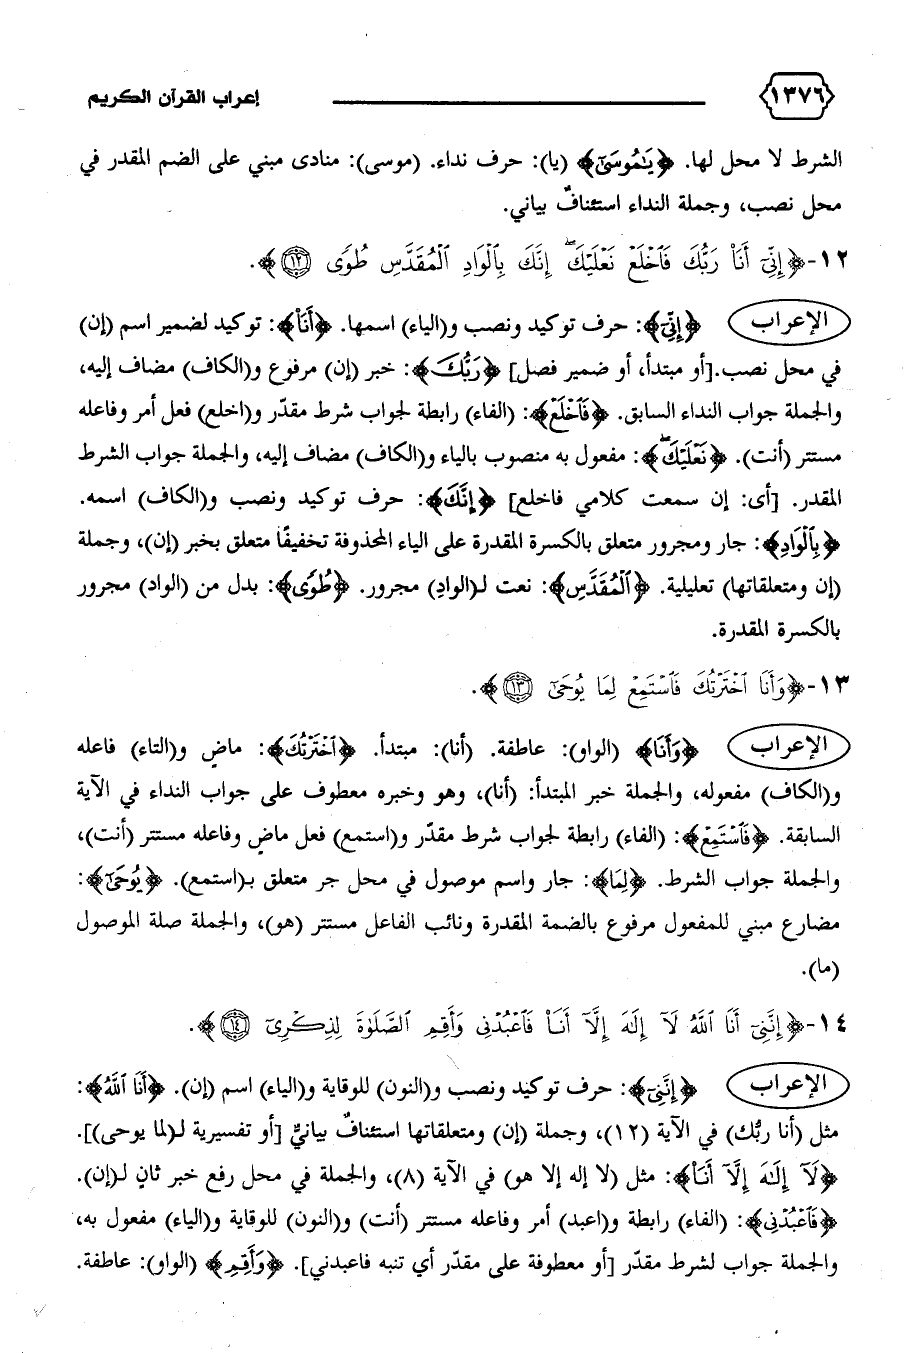 ١٣٧٦ إعراب القرآن الكريم
الشرط لا محل لها. ﴿يَـٰمُوسَىٰٓ﴾ (يا): حرف نداء. (موسى): منادى مبني على الضم المقدر في
محل نصب، وجملة النداء استئنافٌ بياني.
١٢-﴿إِنِّىٓ أَنَا۠ رَبُّكَ فَٱخۡلَعۡ نَعۡلَيۡكَۖ إِنَّكَ بِٱلۡوَادِ ٱلۡمُقَدَّسِ طُوٗى ١٢﴾.
الإعراب ﴿إِنِّىٓ﴾: حرف توكيد ونصب و(الياء) اسمها. ﴿أَنَا۠﴾: توكيد لضمير اسم (إن)
في محل نصب.[أو مبتدأ، أو ضمير فصل] ﴿رَبُّكَ﴾: خبر (إن) مرفوع و(الكاف) مضاف إليه،
والجملة جواب النداء السابق. ﴿فَٱخۡلَعۡ﴾: (الفاء) رابطة لجواب شرط مقدّر و(اخلع) فعل أمر وفاعله
مستتر (أنت). ﴿نَعۡلَيۡكَۖ﴾: مفعول به منصوب بالياء و(الكاف) مضاف إليه، والجملة جواب الشرط
المقدر. [أى: إن سمعت كلامي فاخلع] ﴿إِنَّكَ﴾: حرف توكيد ونصب و(الكاف) اسمه.
﴿بِٱلۡوَادِ﴾: جار ومجرور متعلق بالكسرة المقدرة على الياء المحذوفة تخفيفًا متعلق بخبر (إن)، وجملة
(إن ومتعلقاتها) تعليلية. ﴿ٱلۡمُقَدَّسِ﴾: نعت لـ(الوادِ) مجرور. ﴿طُوٗى﴾: بدل من (الواد) مجرور
بالكسرة المقدرة.
١٣-﴿وَأَنَا ٱخۡتَرۡتُكَ فَٱسۡتَمِعۡ لِمَا يُوحَىٰٓ ١٣﴾.
الإعراب ﴿وَأَنَا﴾ (الواو): عاطفة. (أنا): مبتدأ. ﴿ٱخۡتَرۡتُكَ﴾: ماضٍ و(التاء) فاعله
و(الكاف) مفعوله، والجملة خبر المبتدأ: (أنا)، وهو وخبره معطوف على جواب النداء في الآية
السابقة. ﴿فَٱسۡتَمِعۡ﴾: (الفاء) رابطة لجواب شرط مقدّر و(استمع) فعل ماضٍ وفاعله مستتر (أنت)،
والجملة جواب الشرط. ﴿لِمَا﴾: جار واسم موصول في محل جر متعلق بـ(استمع). ﴿يُوحَىٰٓ﴾:
مضارع مبني للمفعول مرفوع بالضمة المقدرة ونائب الفاعل مستتر (هو)، والجملة صلة الموصول
(ما).
١٤-﴿إِنَّنِىٓ أَنَا ٱللَّهُ لَآ إِلَـٰهَ إِلَّآ أَنَا۠ فَٱعۡبُدۡنِى وَأَقِمِ ٱلصَّلَوٰةَ لِذِكۡرِىٓ ١٤﴾.
الإعراب ﴿إِنَّنِىٓ﴾: حرف توكيد ونصب و(النون) للوقاية و(الياء) اسم (إن). ﴿أَنَا ٱللَّهُ﴾:
مثل (أنا ربُّك) في الآية (١٢)، وجملة (إن) ومتعلقاتها استئنافٌ بيانيٌّ [أو تفسيرية لـ(لما يوحى)].
﴿لَآ إِلَـٰهَ إِلَّآ أَنَا۠﴾: مثل (لا إله إلا هو) في الآية (٨)، والجملة في محل رفع خبر ثانٍ لـ(إن).
﴿فَٱعۡبُدۡنِى﴾: (الفاء) رابطة و(اعبد) أمر وفاعله مستتر (أنت) و(النون) للوقاية و(الياء) مفعول به،
والجملة جواب لشرط مقدّر [أو معطوفة على مقدّر أي تنبه فاعبدني]. ﴿وَأَقِمِ﴾ (الواو): عاطفة.